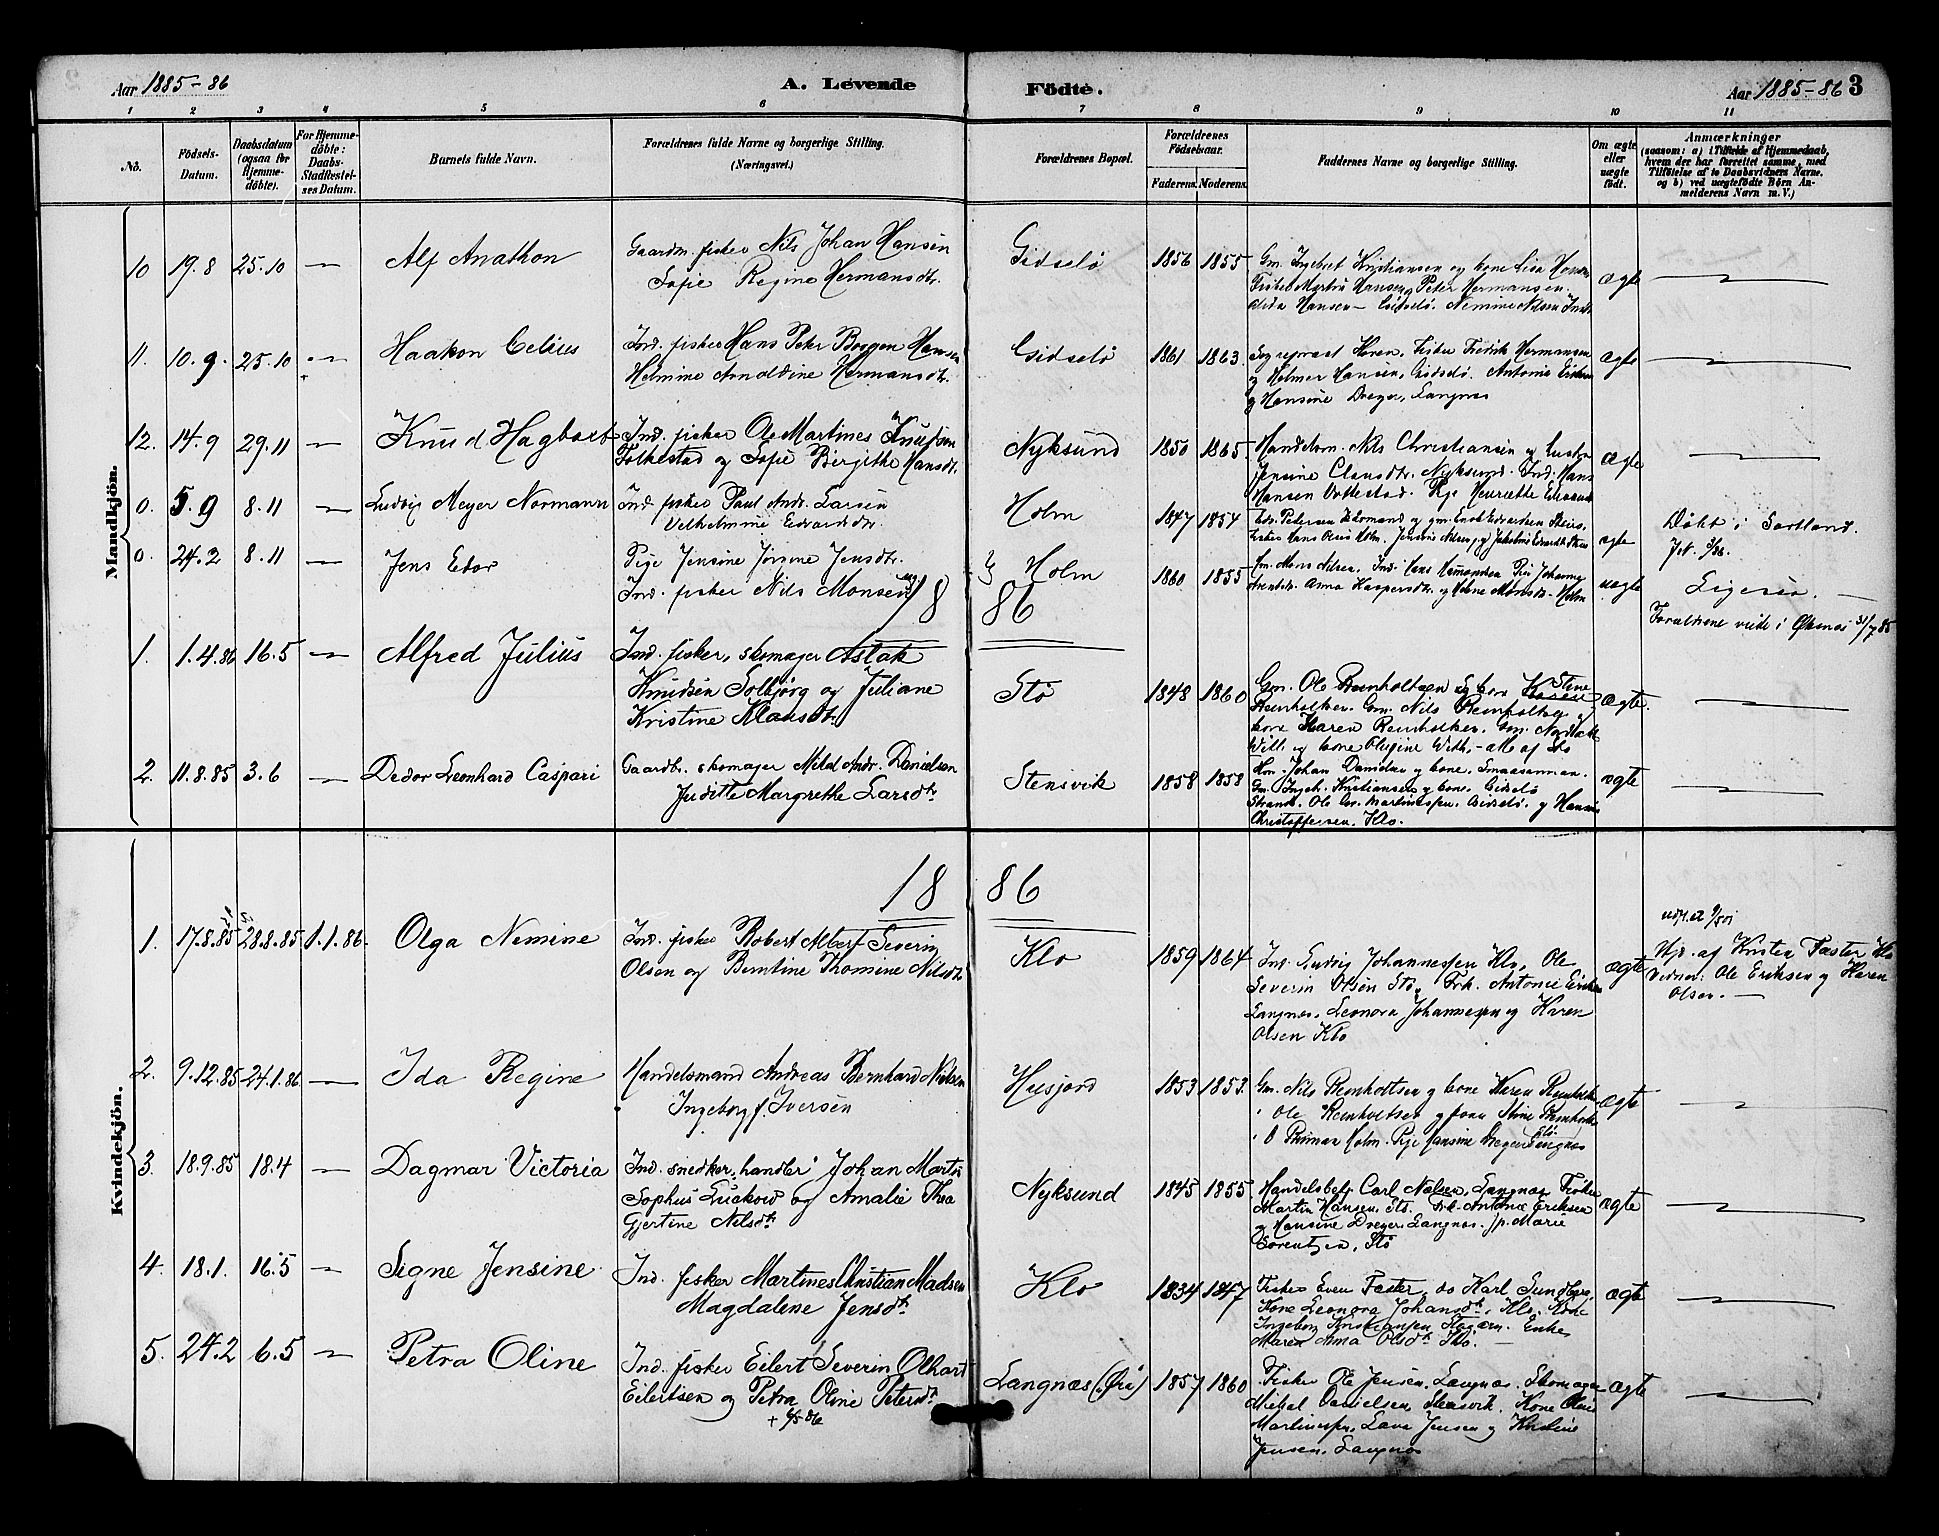 Aar 1885-86
A. Levende Födte.
Aar 1885-86 3
1 2 3 4 5 6 7 8 9 10 11
No.
Födsels-Datum.
Daabsdatum (ogsaa for Hjemme-döbte).
For Hjemme-döbte: Daabs-Stadfæstel-ses Datum.
Barnets fulde Navn.
Forældrenes fulde Navne og borgerlige Stilling.
(Næringsvei.)
Forældrenes Bopæl.
Forældrenes Födselsaar.
Faderens. Moderens.
Faddernes Navne og borgerlige Stilling.
Om ægte eller uægte födt.
Anmærkninger
(saasom: a) i Tilfælde af Hjemmedaab,
hvem der har forrettet samme, med
Tilföielse af to Daabsvidners Navne,
og b) ved uægtefödte Börn An-
melderens Navn m. V.)
Mandkjön.
10 19.8 25.10 — Alf Anathon
Gaardm. fisker Nils Johan Hansen
Sofie Regine Hermansdtr.
Gidselö 1856 1855
Gm. Ingebret Kristiansen og kone
Martin Hansen, Peter Hermansen.
Hansen – Gidselö. Nemine Nilsen
ægte —
11. 10.9. 25.10 — Haakon Celius
Ind. fisker Hans Peter Hansen
Helmine Arnoldine Hermansdtr.
Gidselö 1861 1863.
Fisker Fredrik Hermansen
og Helmer Hansen, Gidselö. Antonie Eriksen
og Hansine Dreyer, Langnæs
ægte —
12. 14.9 29.11 — Knud Hagbart
Ind. fisker Ole Martines Knudsen
Folkestad og Sofie Birgithe Hansdtr.
Nyksund 1850 1865
Handelsm. Nils Christiansen og hustru
Jensine Clausdtr. Nyksund. Ind. Hans
Hansen Pige Henriette
ægte —
0. 5.9 8.11 — Ludvig Meyer Normann
Ind. fisker Paul Andr. Larsen
Vilhelmine Edvardsdtr.
Holm 1847 1854
Pedersen og gm. Enok Edvardsen
Hans Holm. Jensine
ægte
Döbt i Sortland.
0. 24.2 8.11 — Jens Edor
Pige Jensine Jörgine Jensdtr.
Ind. fisker Nils Monsen
Holm 1860 1855
Gm. Mons Nilsen. Ind. Hans Pige Johanna
Anna Kaspersdtr. og Helene Monsdtr. Holm
uægte
Ligesaa. —
Forældrene viede i Öksnes 31/7 85
18 86
1. 1.4.86 16.5 — Alfred Julius
Ind. fisker, skomager Aslak
Knudsen Solbjörg og Juliane
Kristine Klausdtr.
Stö 1848 1860
Gm. Ole Reinholtsen og kone Stine
Reinholtsen. Gm. Nils Reinholtsen og
kone Karen Reinholtsen. Gm.
With og kone Olugine With, – alle af Stö
ægte. —
2. 11.8.85 3.6 — Dedor Leonhard Caspari
Gaardbr. skomager Mikal Andr. Danielsen
Juditte Margrethe Larsdtr.
Stensvik 1858 1858
Gm. Johan Danielsen og kone, Smaasannan.
Gm. Ingebr. Kristiansen og kone, Gidselö
Strand. Ole Martinussen, Gidselö, og Hansine
Christoffersen. Klo.
ægte —
Kvindekjön.
18 86
1. 17.8.85 28.8.85 1.1.86. Olga Nemine
Ind. fisker Robert Albert Severin
Olsen og Berntine Thomine Nilsdtr.
Klo 1859 1864
Ind. Ludvig Johannessen Klo, Ole
Severin Olsen Stö, Frk. Antonie Eriksen
Langnæs. Leonora Johannessen og Karen
Olsen Klo
ægte
Hjd. af Kristen Faster Klo
Vidner: Ole Eriksen og Karen
Olsen. —
2. 9.12.85 24.1.86 — Ida Regine
Handelsmand Andreas Bernhard Nilsen
Ingeborg f. Iversen
Husjord 1853 1853.
Gm. Nils Reinholtsen og kone Karen Reinholtsen
" Ole Reinholtsen og kone Stine Reinholtsen Stö
Holm. Pige Hansine Dreyer Langnæs
ægte —
3. 18.9.85 18.4 — Dagmar Victoria
Ind. snedker, handler Johan Martin
Sophus Luckow og Amalie Thea
Gjertine Nilsdtr
Nyksund 1845 1855
Handelsbetj. Carl Nielsen, Langnæs. Fisker
Martin Hansen, Stö. Frk. Antonie Eriksen
og Hansine Dreyer, Langnæs. Jp. Marie
Lorentzen, Stö
ægte —
4. 18.1. 16.5 — Signe Jensine
Ind. fisker Martines Christian Madsen
Magdalene Jensdtr
Klo 1834 1847
Fisker Even Faster, do Karl Sundby,
Kone Leonora Johansdtr, Klo, Kone
Ingeborg Kristiansen Enke
Maren Anna Olsdtr Klo. —
ægte —
5. 24.2 6.5 — Petra Oline
Ind. fisker Eilert Severin Olhart
Eilertsen og Petra Oline Petersdtr
Langnæs (Öre) 1857 1860
Fisker Ole Jensen, Langnæs. Skomager
Mikal Danielsen Stensvik. Kone Oline
Martinussen, Lava Jensen og Kristine
Jensen, Langnæs
ægte —